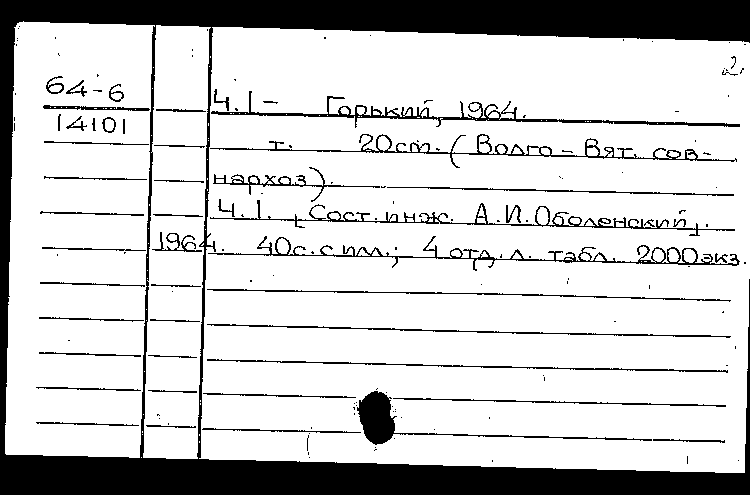 2.
64-6
14101
Ч.1- Горький, 1964.
т. 20см. (Волго-Вят. сов-
нархоз).
Ч.1. [Сост. инж. А.И.Оболенский].
1964. 40с. с илл.; 4 отд. л. табл. 2000экз.